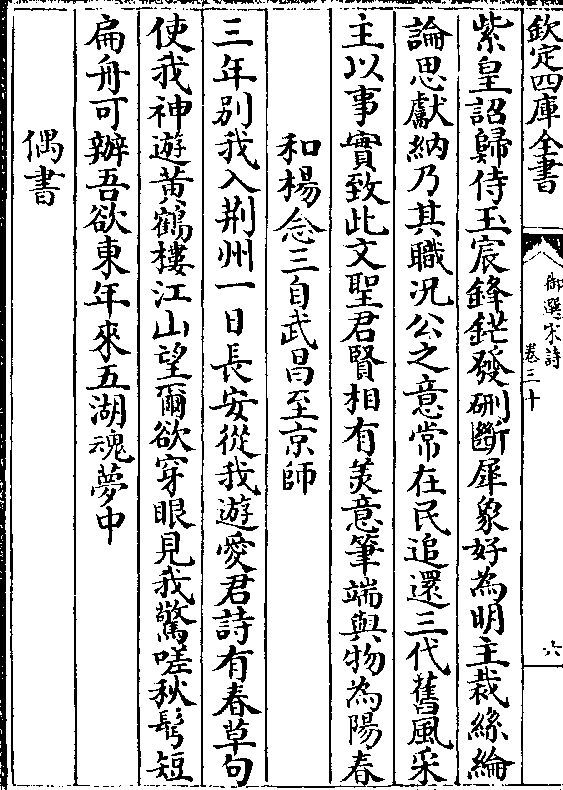 欽定四庫全書
御選宋詩
卷三十
六
紫皇詔歸侍玉宸鋒鋩發硎斷犀象好為明主裁絲綸
論思獻納乃其職況公之意常在民追還三代舊風采
主以事實致此文聖君賢相有美意筆端與物為陽春
和楊念三自武昌至京師
三年別我入荆州一日長安從我遊愛君詩有春草句
使我神遊黃鶴樓江山望爾欲穿眼見我驚嗟秋鬂短
扁舟可辦吾欲東年來五湖魂夢中
偶書